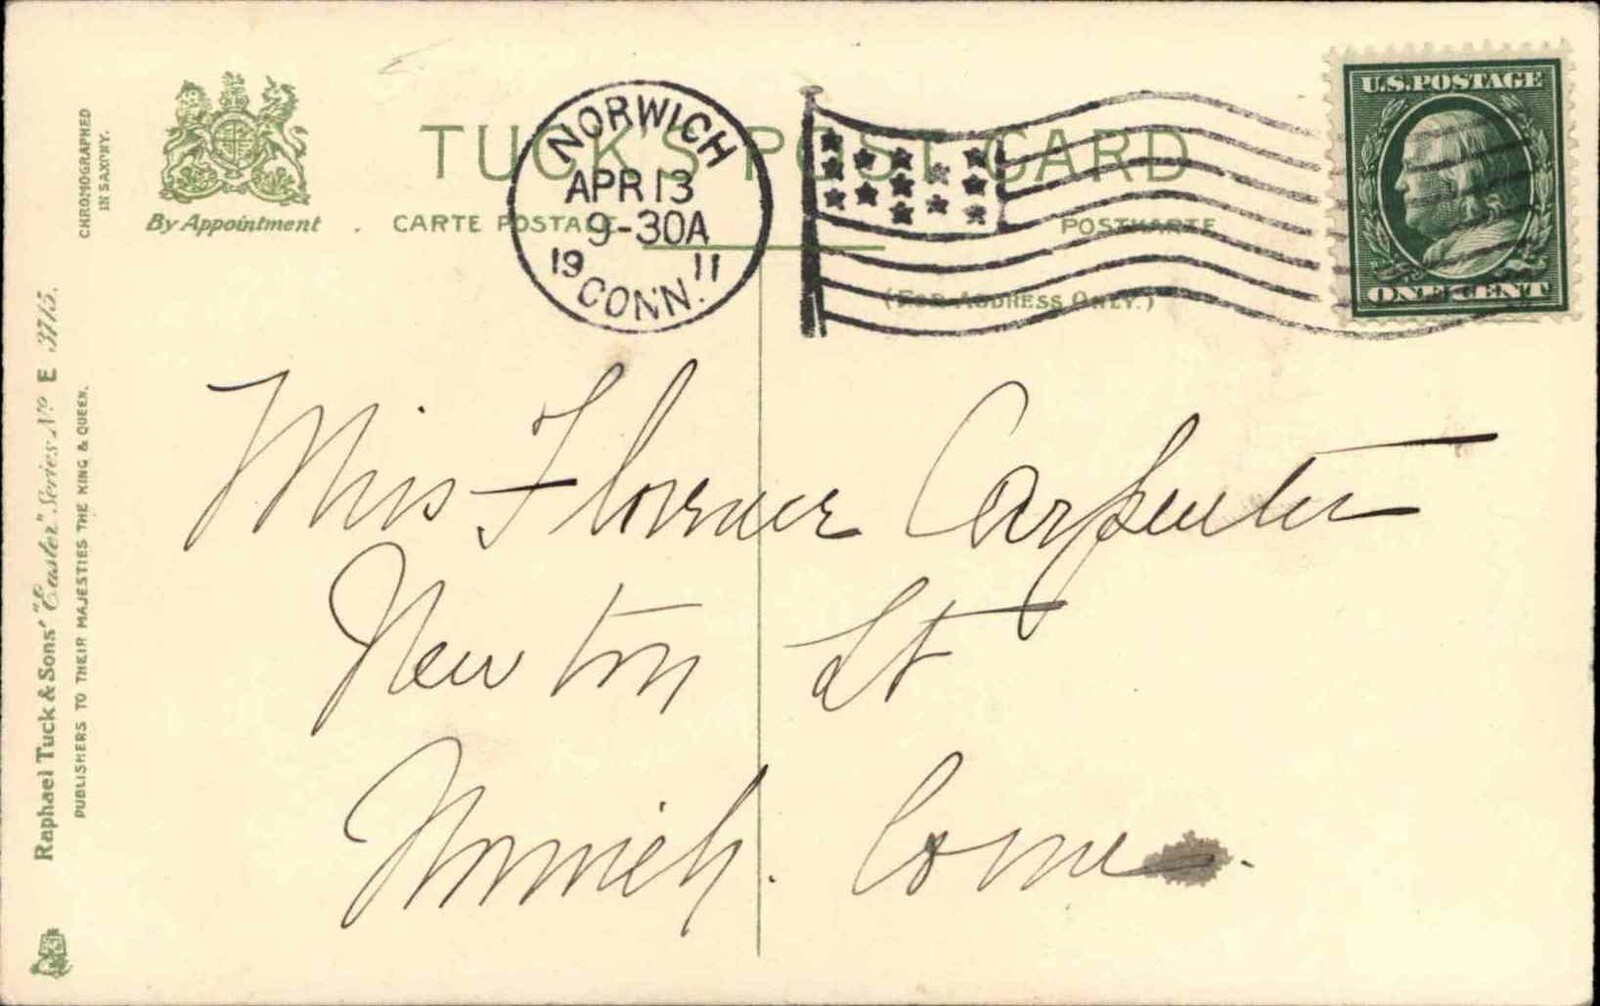 TUCK'S POST CARD
CARTE POSTALE
POSTKARTE
(FOR ADDRESS ONLY.)
By Appointment
CHROMOGRAPHED
IN SAXONY.
Raphael Tuck & Sons' "Easter" Series No E 3715.
PUBLISHERS TO THEIR MAJESTIES THE KING & QUEEN.
NORWICH
APR 13
9-30A
19 11
CONN.
U.S. POSTAGE
ONE CENT
Miss Florence Carpenter
Newton St
Norwich. Conn.